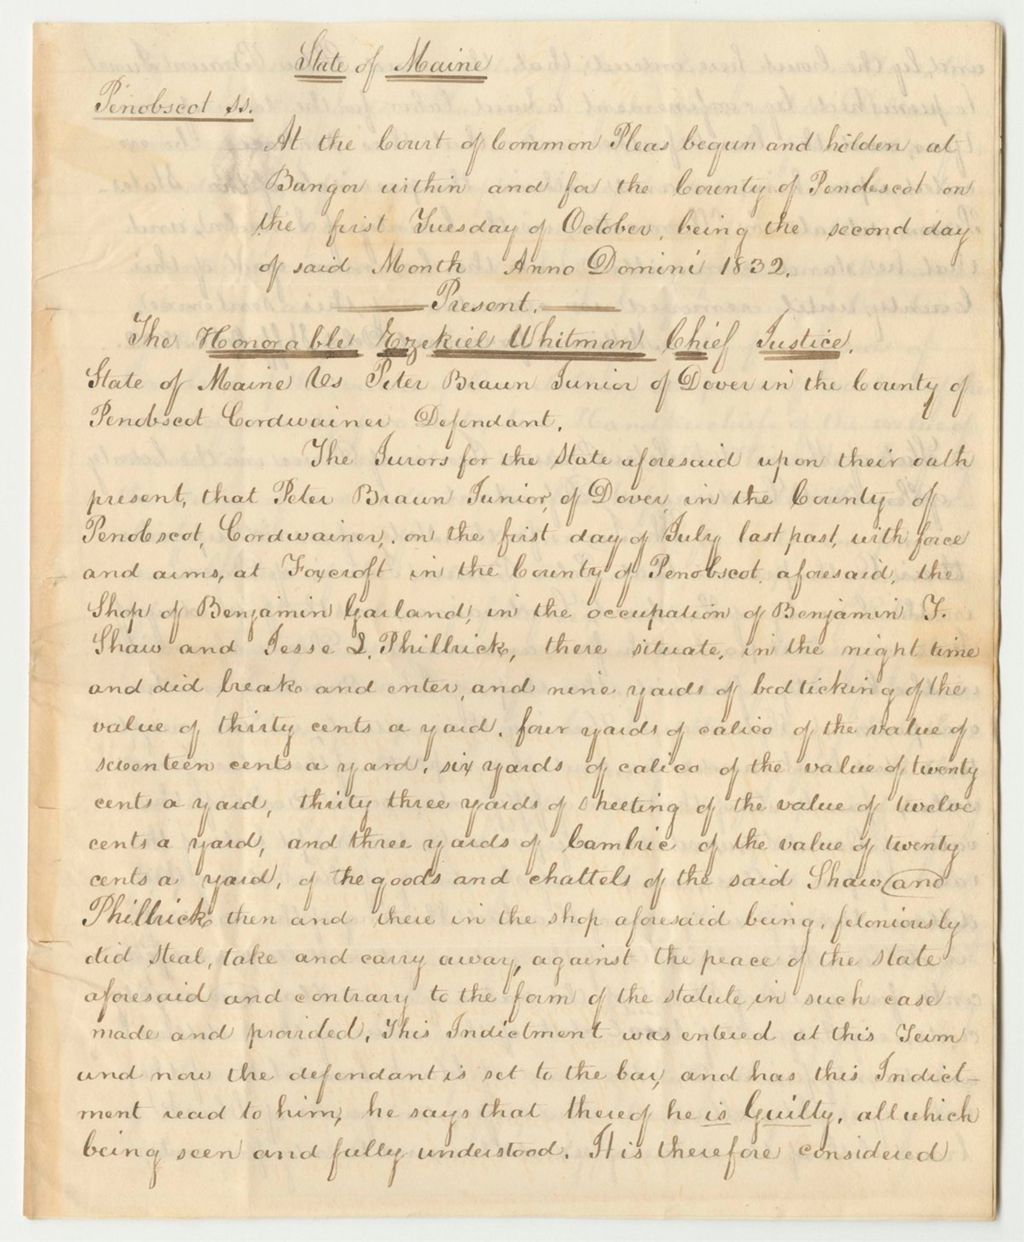 State of Maine
Penobscot ss.
At the Court of Common Pleas begun and holden at
Bangor within and for the County of Penobscot on
the first Tuesday of October, being the second day
of said Month Anno Domini 1832.
Present.
The Honorable Ezekiel Whitman Chief Justice.
State of Maine Vs Peter Braun Junior of Dover in the County of
Penobscot Cordwainer Defendant.
The Jurors for the State aforesaid upon their oath
present, that Peter Braun Junior, of Dover, in the County of
Penobscot, Cordwainer, on the first day of July last past, with force
and arms, at Foxcroft in the County of Penobscot aforesaid, the
Shop of Benjamin Garland, in the occupation of Benjamin F.
Shaw and Jesse L. Philbrick, there situate, in the night time
and did break and enter, and nine yards of bedticking of the
value of thirty cents a yard, four yards of calico of the value of
seventeen cents a yard, six yards of calico of the value of twenty
cents a yard, thirty three yards of sheeting of the value of twelve
cents a yard, and three yards of Cambric of the value of twenty
cents a yard, of the goods and chattels of the said Shaw and
Philbrick then and there in the shop aforesaid being, feloniously
did steal, take and carry away, against the peace of the state
aforesaid and contrary to the form of the statute in such case
made and provided. This Indictment was entered at this Term
and now the defendant is set to the bar, and has this Indict-
ment read to him, he says that thereof he is Guilty. all which
being seen and fully understood. It is therefore considered